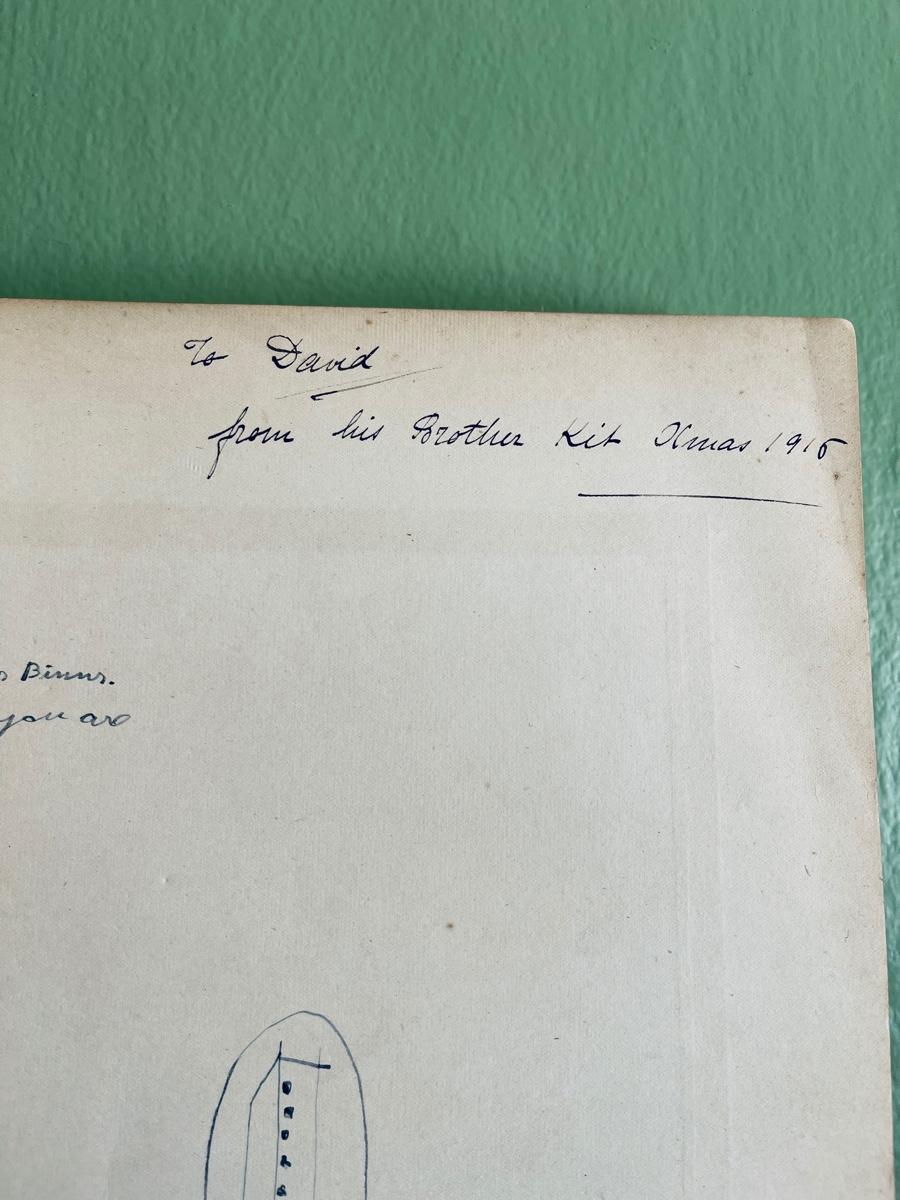 To David
from his Brother Kit Xmas 1915
Binns.
you are